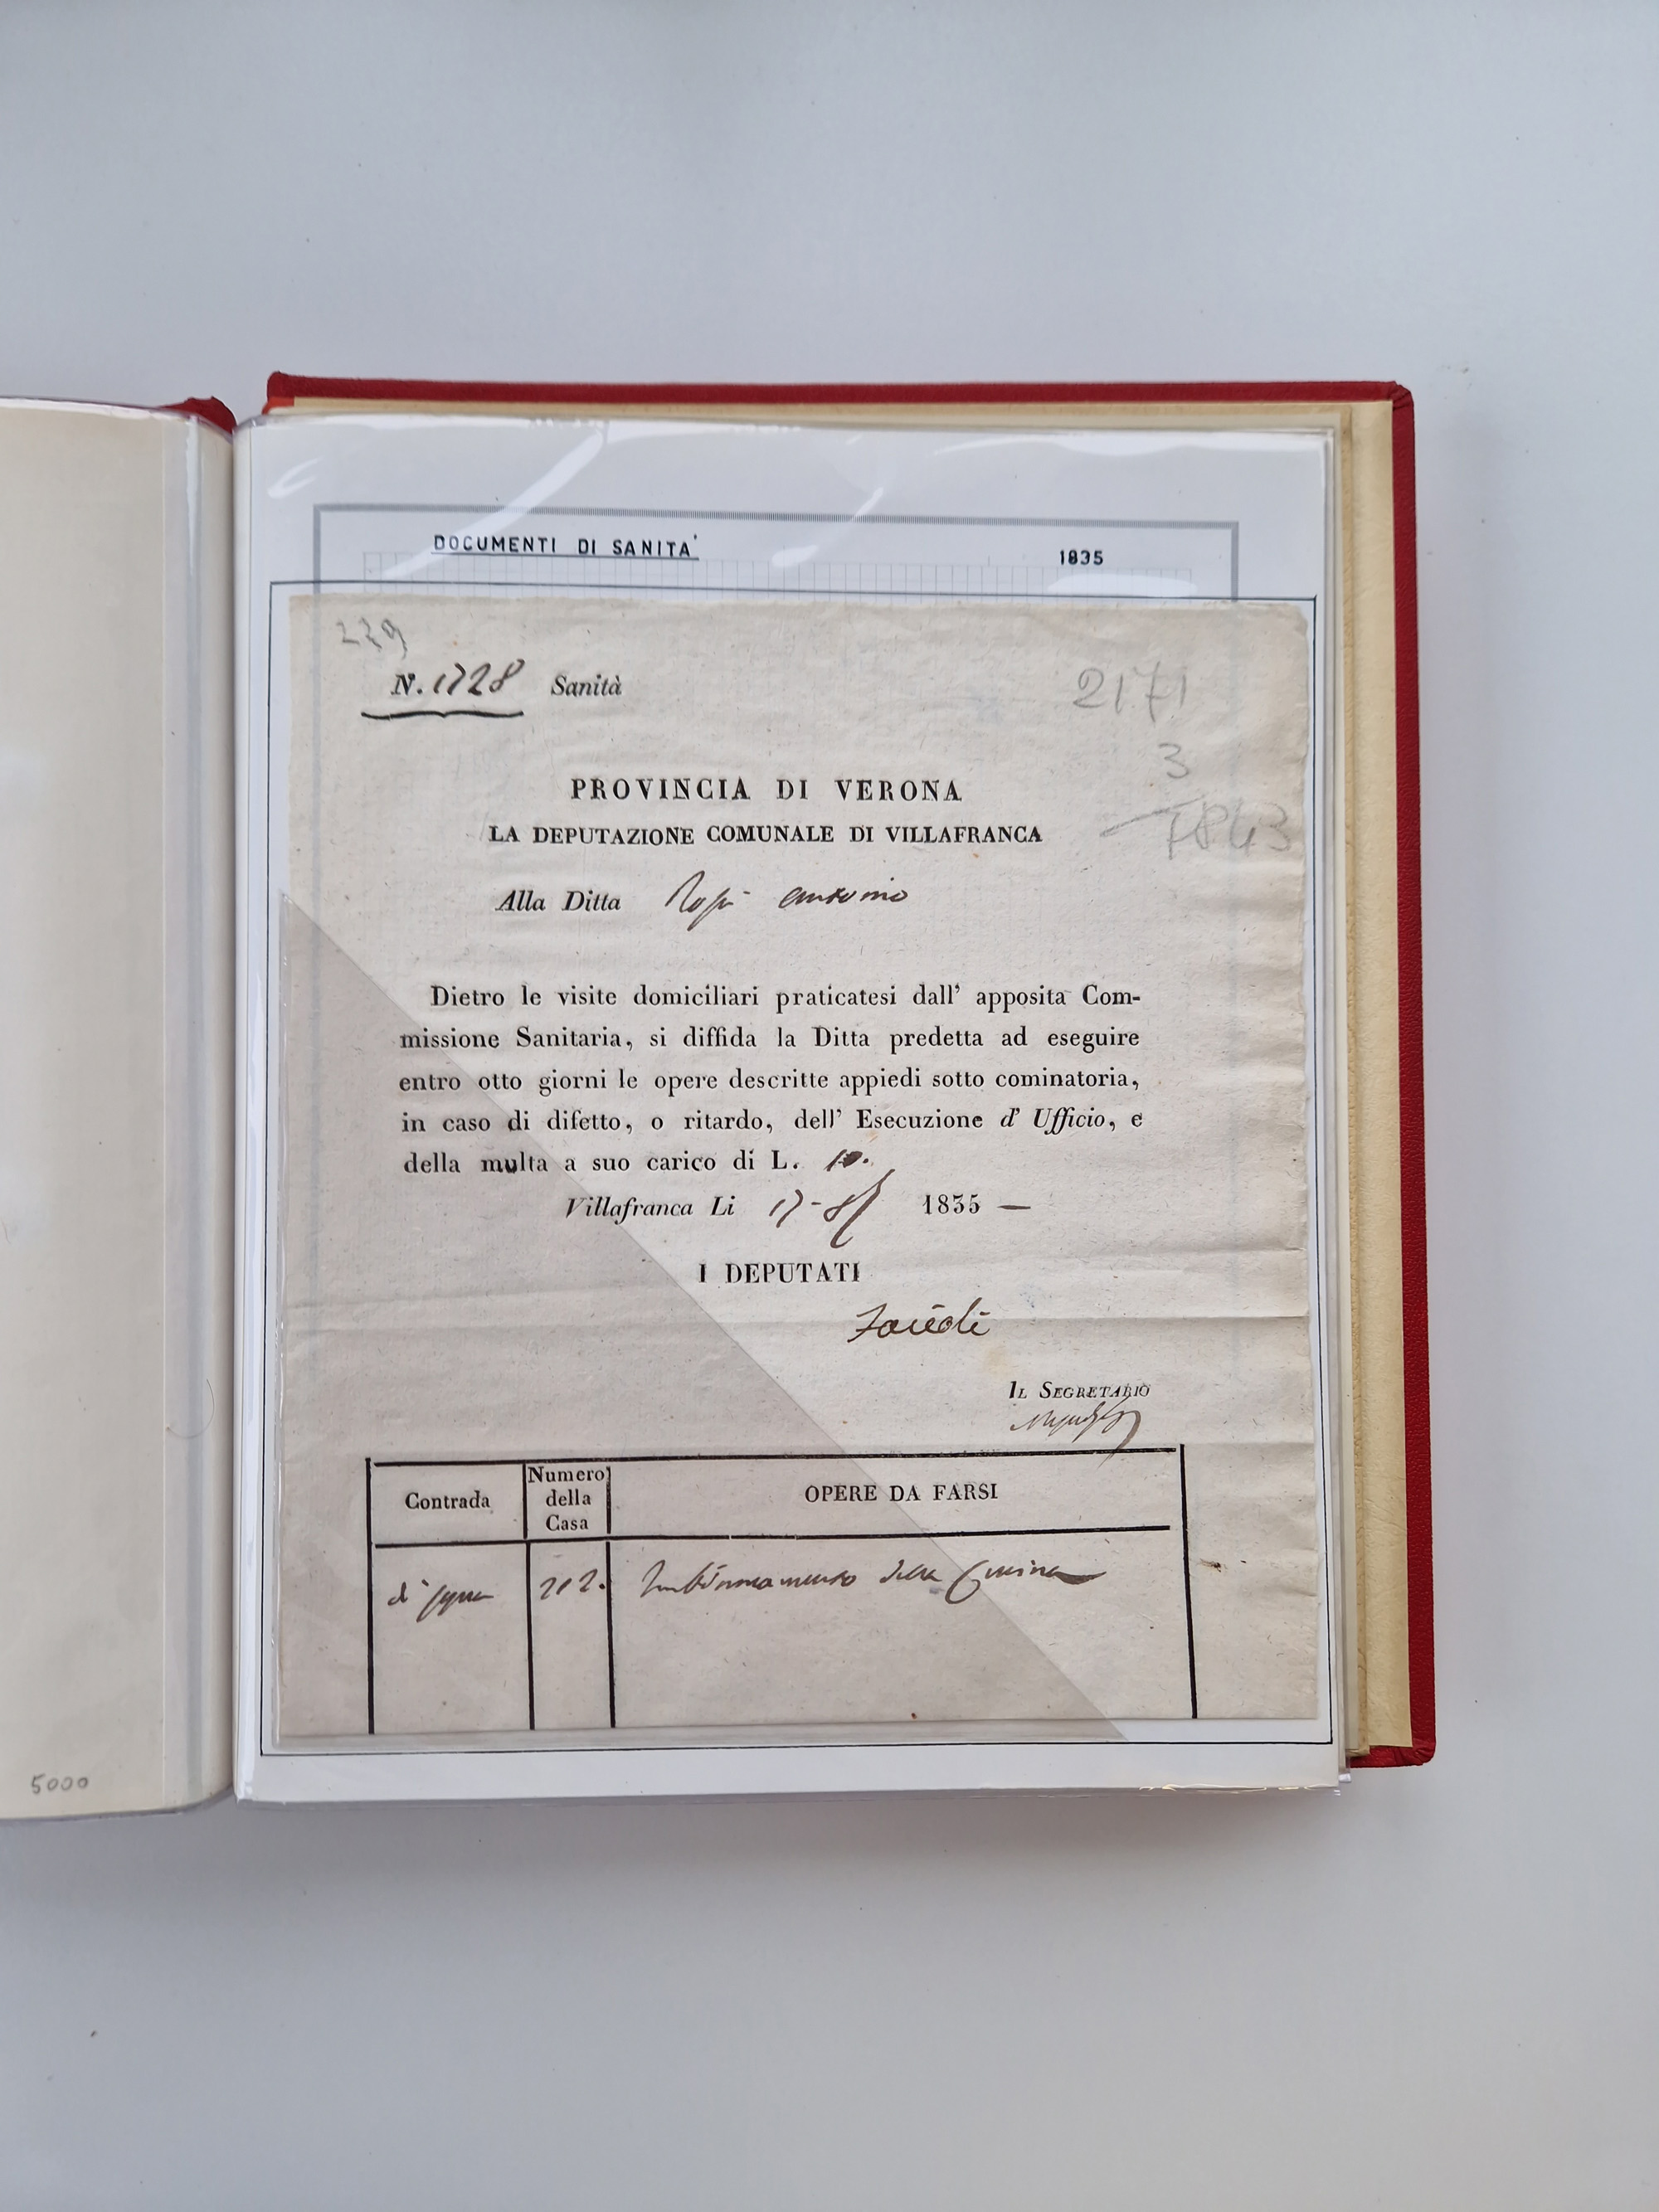 DOCUMENTI DI SANITA' 1835
239
N. 1728 Sanità
2171
3
1843
PROVINCIA DI VERONA
LA DEPUTAZIONE COMUNALE DI VILLAFRANCA
Alla Ditta Rossi Antonio
Dietro le visite domiciliari praticatesi dall' apposita Com-
missione Sanitaria, si diffida la Ditta predetta ad eseguire
entro otto giorni le opere descritte appiedi sotto cominatoria,
in caso di difetto, o ritardo, dell' Esecuzione d' Ufficio, e
della multa a suo carico di L. 10.
Villafranca Li 17 - 1835 —
I DEPUTATI
IL SEGRETARIO
Contrada
Numero
della
Casa
OPERE DA FARSI
di 212. della Cucina
5000